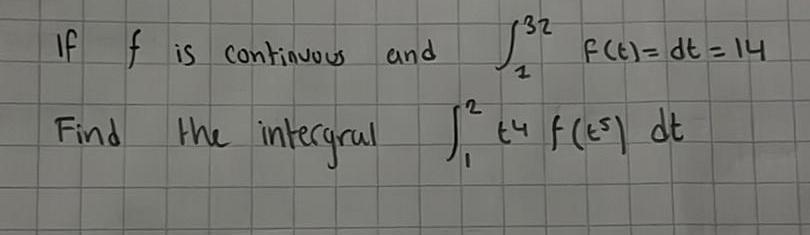 If f is continuous and ∫₁³² f(t)= dt = 14
Find the intergral ∫₁² t⁴ f(t⁵) dt